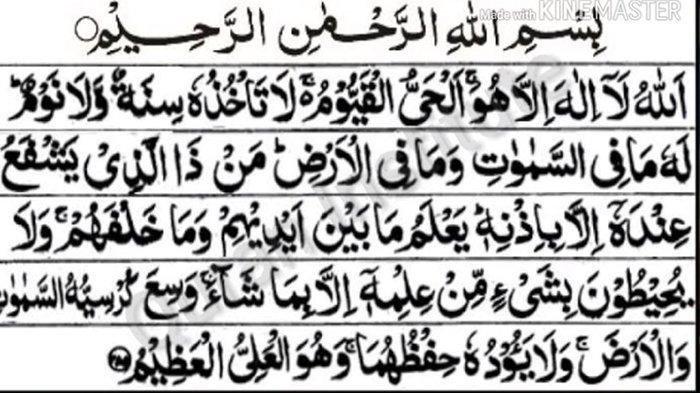 Made with KINEMASTER
بِسْمِ اللهِ الرَّحْمٰنِ الرَّحِيْمِ ○
اَللهُ لَآ اِلٰهَ اِلَّا هُوَ ۚ اَلْحَيُّ الْقَيُّوْمُ ۚ لَا تَاْخُذُهٗ سِنَةٌ وَّلَا نَوْمٌ ؕ
لَهٗ مَا فِى السَّمٰوٰتِ وَمَا فِى الْاَرْضِ ؕ مَنْ ذَا الَّذِىْ يَشْفَعُ
عِنْدَهٗٓ اِلَّا بِاِذْنِهٖ ؕ يَعْلَمُ مَا بَيْنَ اَيْدِيْهِمْ وَمَا خَلْفَهُمْ ۚ وَلَا
يُحِيْطُوْنَ بِشَىْءٍ مِّنْ عِلْمِهٖٓ اِلَّا بِمَا شَآءَ ۚ وَسِعَ كُرْسِيُّهُ السَّمٰوٰتِ
وَالْاَرْضَ ۚ وَلَا يَـُٔوْدُهٗ حِفْظُهُمَا ۚ وَهُوَ الْعَلِىُّ الْعَظِيْمُ ﴿۲۵۵﴾